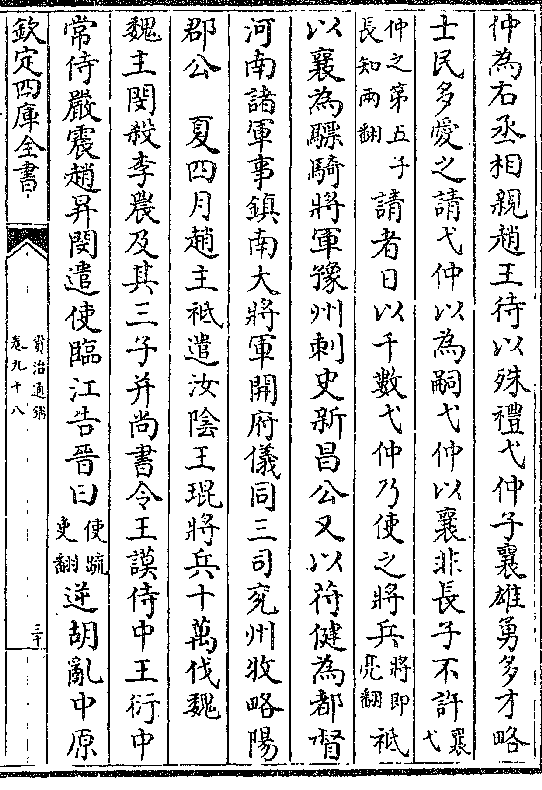 仲為右丞相親趙王待以殊禮弋仲子襄雄勇多才略
士民多愛之請弋仲以為嗣弋仲以襄非長子不許襄弋
仲之第五子長知兩翻請者日以千數弋仲乃使之將兵將即亮翻祗
以襄為驃騎將軍豫州刺史新昌公又以苻健為都督
河南諸軍事鎮南大將軍開府儀同三司兖州牧略陽
郡公　夏四月趙主祗遣汝陰王琨將兵十萬伐魏
魏主閔殺李農及其三子并尚書令王謨侍中王衍中
常侍嚴震趙昇閔遣使臨江告晉曰使疏吏翻逆胡亂中原
欽定四庫全書
資治通鑑
卷九十八
三十